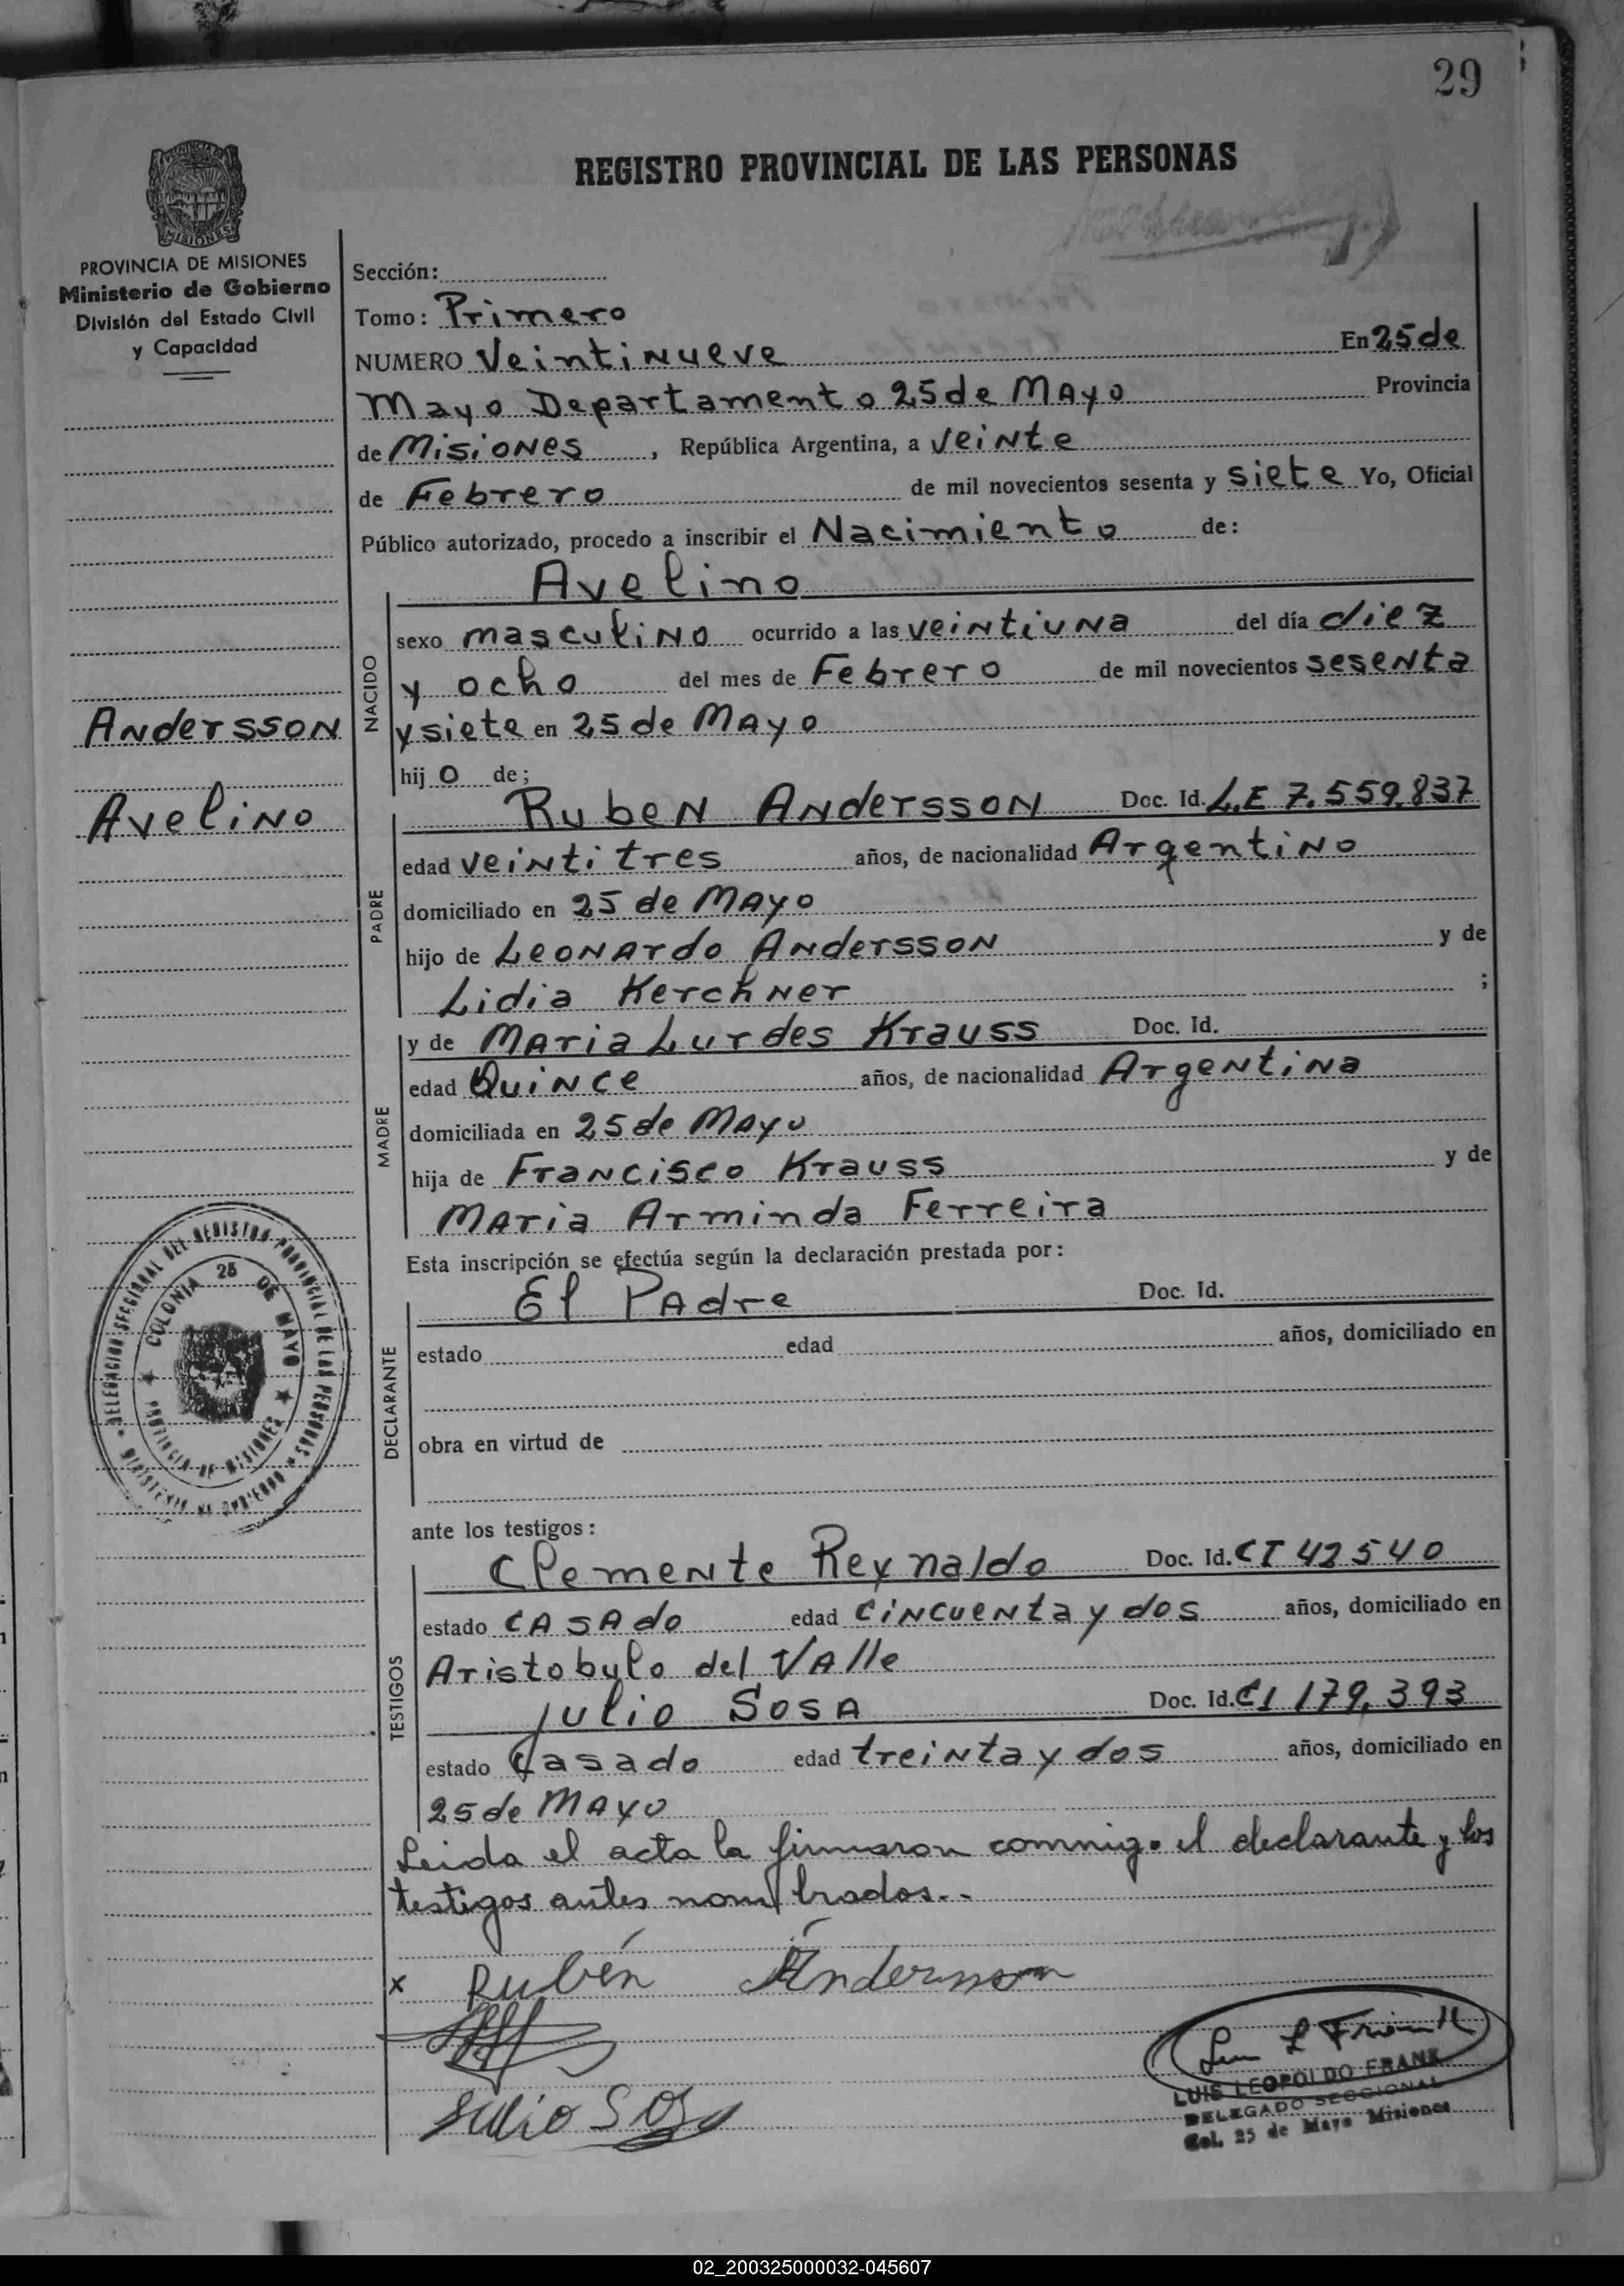 29
REGISTRO PROVINCIAL DE LAS PERSONAS
MISIONES
PROVINCIA DE MISIONES
Ministerio de Gobierno
División del Estado Civil
y Capacidad
Andersson
Avelino
DELEGACION SECCIONAL DEL REGISTRO PROVINCIAL DE LAS PERSONAS
MINISTERIO DE GOBIERNO
COLONIA 25 DE MAYO
PROVINCIA DE MISIONES
Sección:
Tomo: Primero
NUMERO Veintinueve En 25 de
Mayo Departamento 25 de Mayo Provincia
de Misiones, República Argentina, a veinte
de Febrero de mil novecientos sesenta y siete Yo, Oficial
Público autorizado, procedo a inscribir el Nacimiento de:
NACIDO
Avelino
sexo masculino ocurrido a las veintiuna del día diez
y ocho del mes de Febrero de mil novecientos sesenta
y siete en 25 de Mayo
hijo de;
PADRE
Ruben Andersson Doc. Id. L.E 7.559.837
edad veintitres años, de nacionalidad Argentino
domiciliado en 25 de Mayo
hijo de Leonardo Andersson y de
Lidia Kerchner ;
MADRE
y de Maria Lurdes Krauss Doc. Id.
edad Quince años, de nacionalidad Argentina
domiciliada en 25 de Mayo
hija de Francisco Krauss y de
Maria Arminda Ferreira
Esta inscripción se efectúa según la declaración prestada por:
DECLARANTE
El Padre Doc. Id.
estado edad años, domiciliado en
obra en virtud de
ante los testigos:
TESTIGOS
Clemente Reynaldo Doc. Id. CI 42540
estado casado edad cincuenta y dos años, domiciliado en
Aristobulo del Valle
Julio Sosa Doc. Id. CI 179,393
estado casado edad treinta y dos años, domiciliado en
25 de Mayo
Leida el acta la firmaron conmigo el declarante y los
testigos antes nombrados..-
x Rubén Andersson
Julio Sosa
Luis L Frank
LUIS LEOPOLDO FRANK
DELEGADO SECCIONAL
Col. 25 de Mayo Misiones
02_200325000032-045607